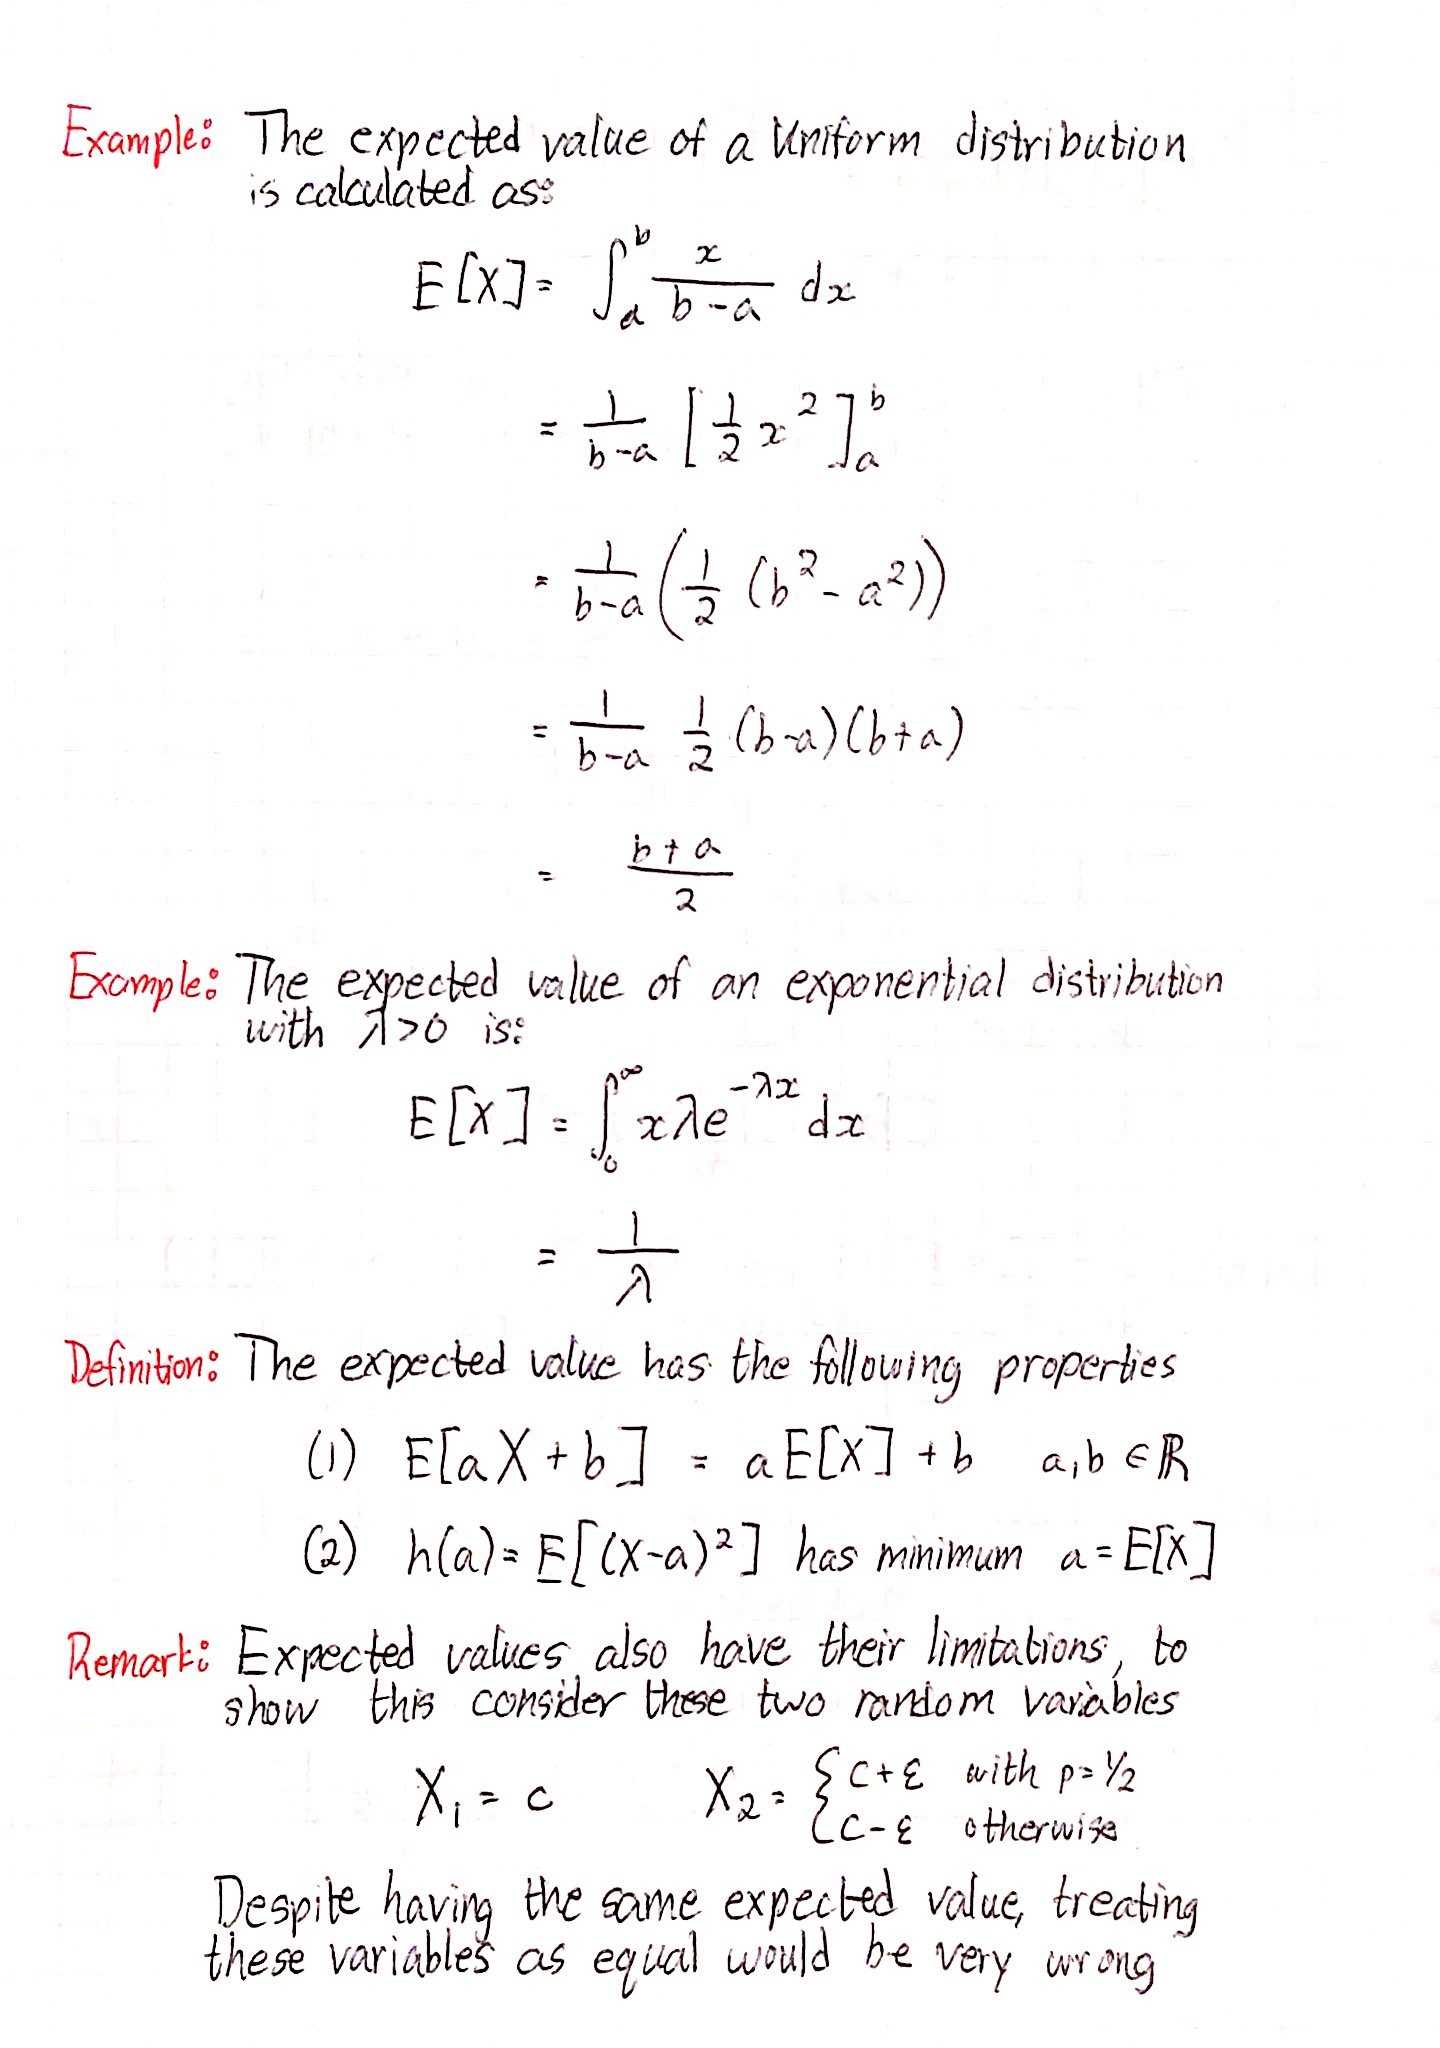 Example: The expected value of a Uniform distribution
is calculated as:
E[X] = ∫_a^b x/(b-a) dx
= 1/(b-a) [1/2 x^2]_a^b
= 1/(b-a) (1/2 (b^2 - a^2))
= 1/(b-a) 1/2 (b-a)(b+a)
= (b+a)/2
Example: The expected value of an exponential distribution
with λ>0 is:
E[X] = ∫_0^∞ xλe^{-λx} dx
= 1/λ
Definition: The expected value has the following properties
(1) E[aX+b] = aE[X] + b a,b ∈ ℝ
(2) h(a) = E[(X-a)^2] has minimum a = E[X]
Remark: Expected values also have their limitations, to
show this consider these two random variables
X_1 = c X_2 = { c+ε with p=1/2
c-ε otherwise
Despite having the same expected value, treating
these variables as equal would be very wrong